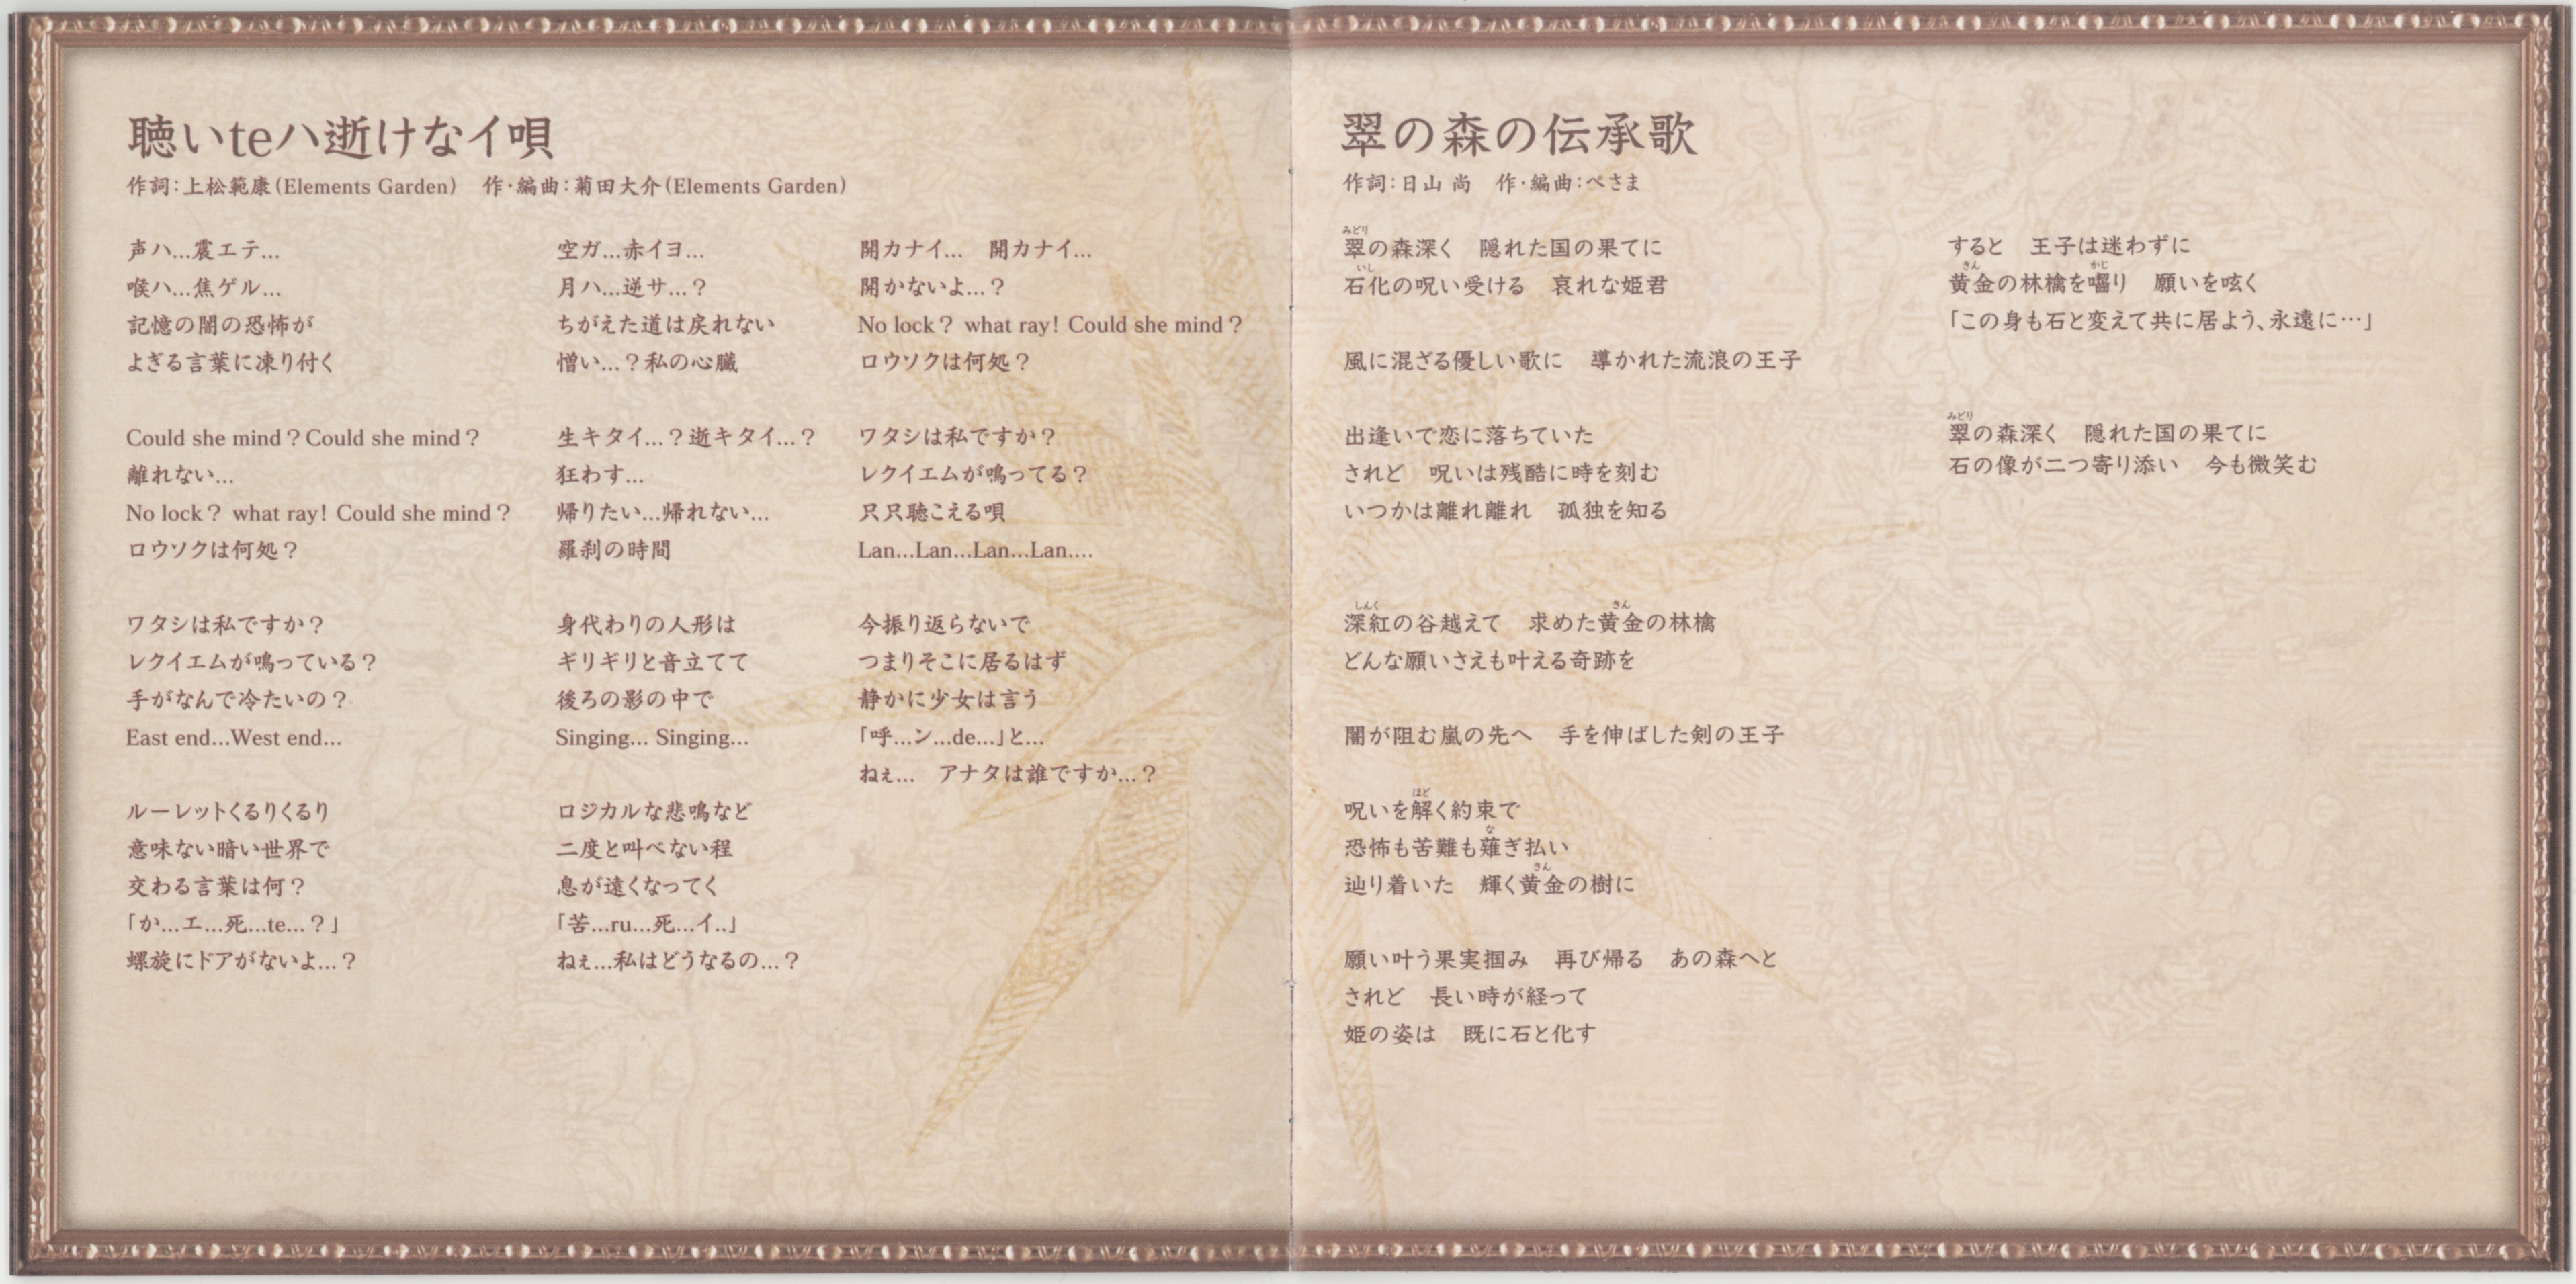 聴いteハ逝けなイ唄
作詞:上松範康(Elements Garden)　作・編曲:菊田大介(Elements Garden)
声ハ...震エテ...
喉ハ...焦ゲル...
記憶の闇の恐怖が
よぎる言葉に凍り付く
Could she mind？Could she mind？
離れない...
No lock？ what ray! Could she mind？
ロウソクは何処？
ワタシは私ですか？
レクイエムが鳴っている？
手がなんで冷たいの？
East end...West end...
ルーレットくるりくるり
意味ない暗い世界で
交わる言葉は何？
「か...エ...死...te...？」
螺旋にドアがないよ...？
空ガ...赤イヨ...
月ハ...逆サ...？
ちがえた道は戻れない
憎い...？私の心臓
生キタイ...？逝キタイ...？
狂わす...
帰りたい...帰れない...
羅刹の時間
身代わりの人形は
ギリギリと音立てて
後ろの影の中で
Singing... Singing...
ロジカルな悲鳴など
二度と叫べない程
息が遠くなってく
「苦...ru...死...イ..」
ねぇ...私はどうなるの...？
開カナイ...　開カナイ...
開かないよ...？
No lock？ what ray! Could she mind？
ロウソクは何処？
ワタシは私ですか？
レクイエムが鳴ってる？
只只聴こえる唄
Lan...Lan...Lan...Lan....
今振り返らないで
つまりそこに居るはず
静かに少女は言う
「呼...ン...de...」と...
ねぇ...　アナタは誰ですか...？
翠の森の伝承歌
作詞:日山 尚　作・編曲:ぺさま
みどり
翠の森深く　隠れた国の果てに
いし
石化の呪い受ける　哀れな姫君
風に混ざる優しい歌に　導かれた流浪の王子
出逢いで恋に落ちていた
されど　呪いは残酷に時を刻む
いつかは離れ離れ　孤独を知る
しんく　きん
深紅の谷越えて　求めた黄金の林檎
どんな願いさえも叶える奇跡を
闇が阻む嵐の先へ　手を伸ばした剣の王子
ほど
呪いを解く約束で
な
恐怖も苦難も薙ぎ払い
きん
辿り着いた　輝く黄金の樹に
願い叶う果実掴み　再び帰る　あの森へと
されど　長い時が経って
姫の姿は　既に石と化す
すると　王子は迷わずに
きん　かじ
黄金の林檎を囓り　願いを呟く
「この身も石と変えて共に居よう、永遠に…」
みどり
翠の森深く　隠れた国の果てに
石の像が二つ寄り添い　今も微笑む